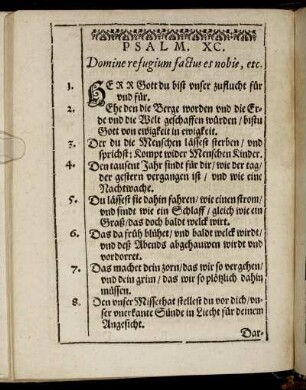 PSALM. XC.
Domine refugium factus es nobis, etc.
1. HERR Gott du bist vnser zuflucht für
vnd für.
2. Ehe den die Berge worden vnd die Er-
de vnd die Welt geschaffen würden / bistu
Gott von ewigkeit in ewigkeit.
3. Der du die Menschen lässest sterben / vnd
sprichst: Kompt wider Menschen Kinder.
4. Den tausent Jahr sindt für dir / wie der tag /
der gestern vergangen ist / vnd wie eine
Nachtwacht.
5. Du lässest sie dahin fahren / wie einen strom /
vnd sindt wie ein Schlaff / gleich wie ein
Graß / das doch baldt welck wirt.
6. Das da früh blühet / vnd baldt welck wirdt /
vnd deß Abends abgehauwen wirdt vnd
vordorret.
7. Das machet dein zorn / das wir so vergehen /
vnd dein grim / das wir so plötzlich dahin
müssen.
8. Den vnser Missethat stellest du vor dich / vn-
ser vnerkante Sünde in Liecht für deinem
Angesicht.
Dar-